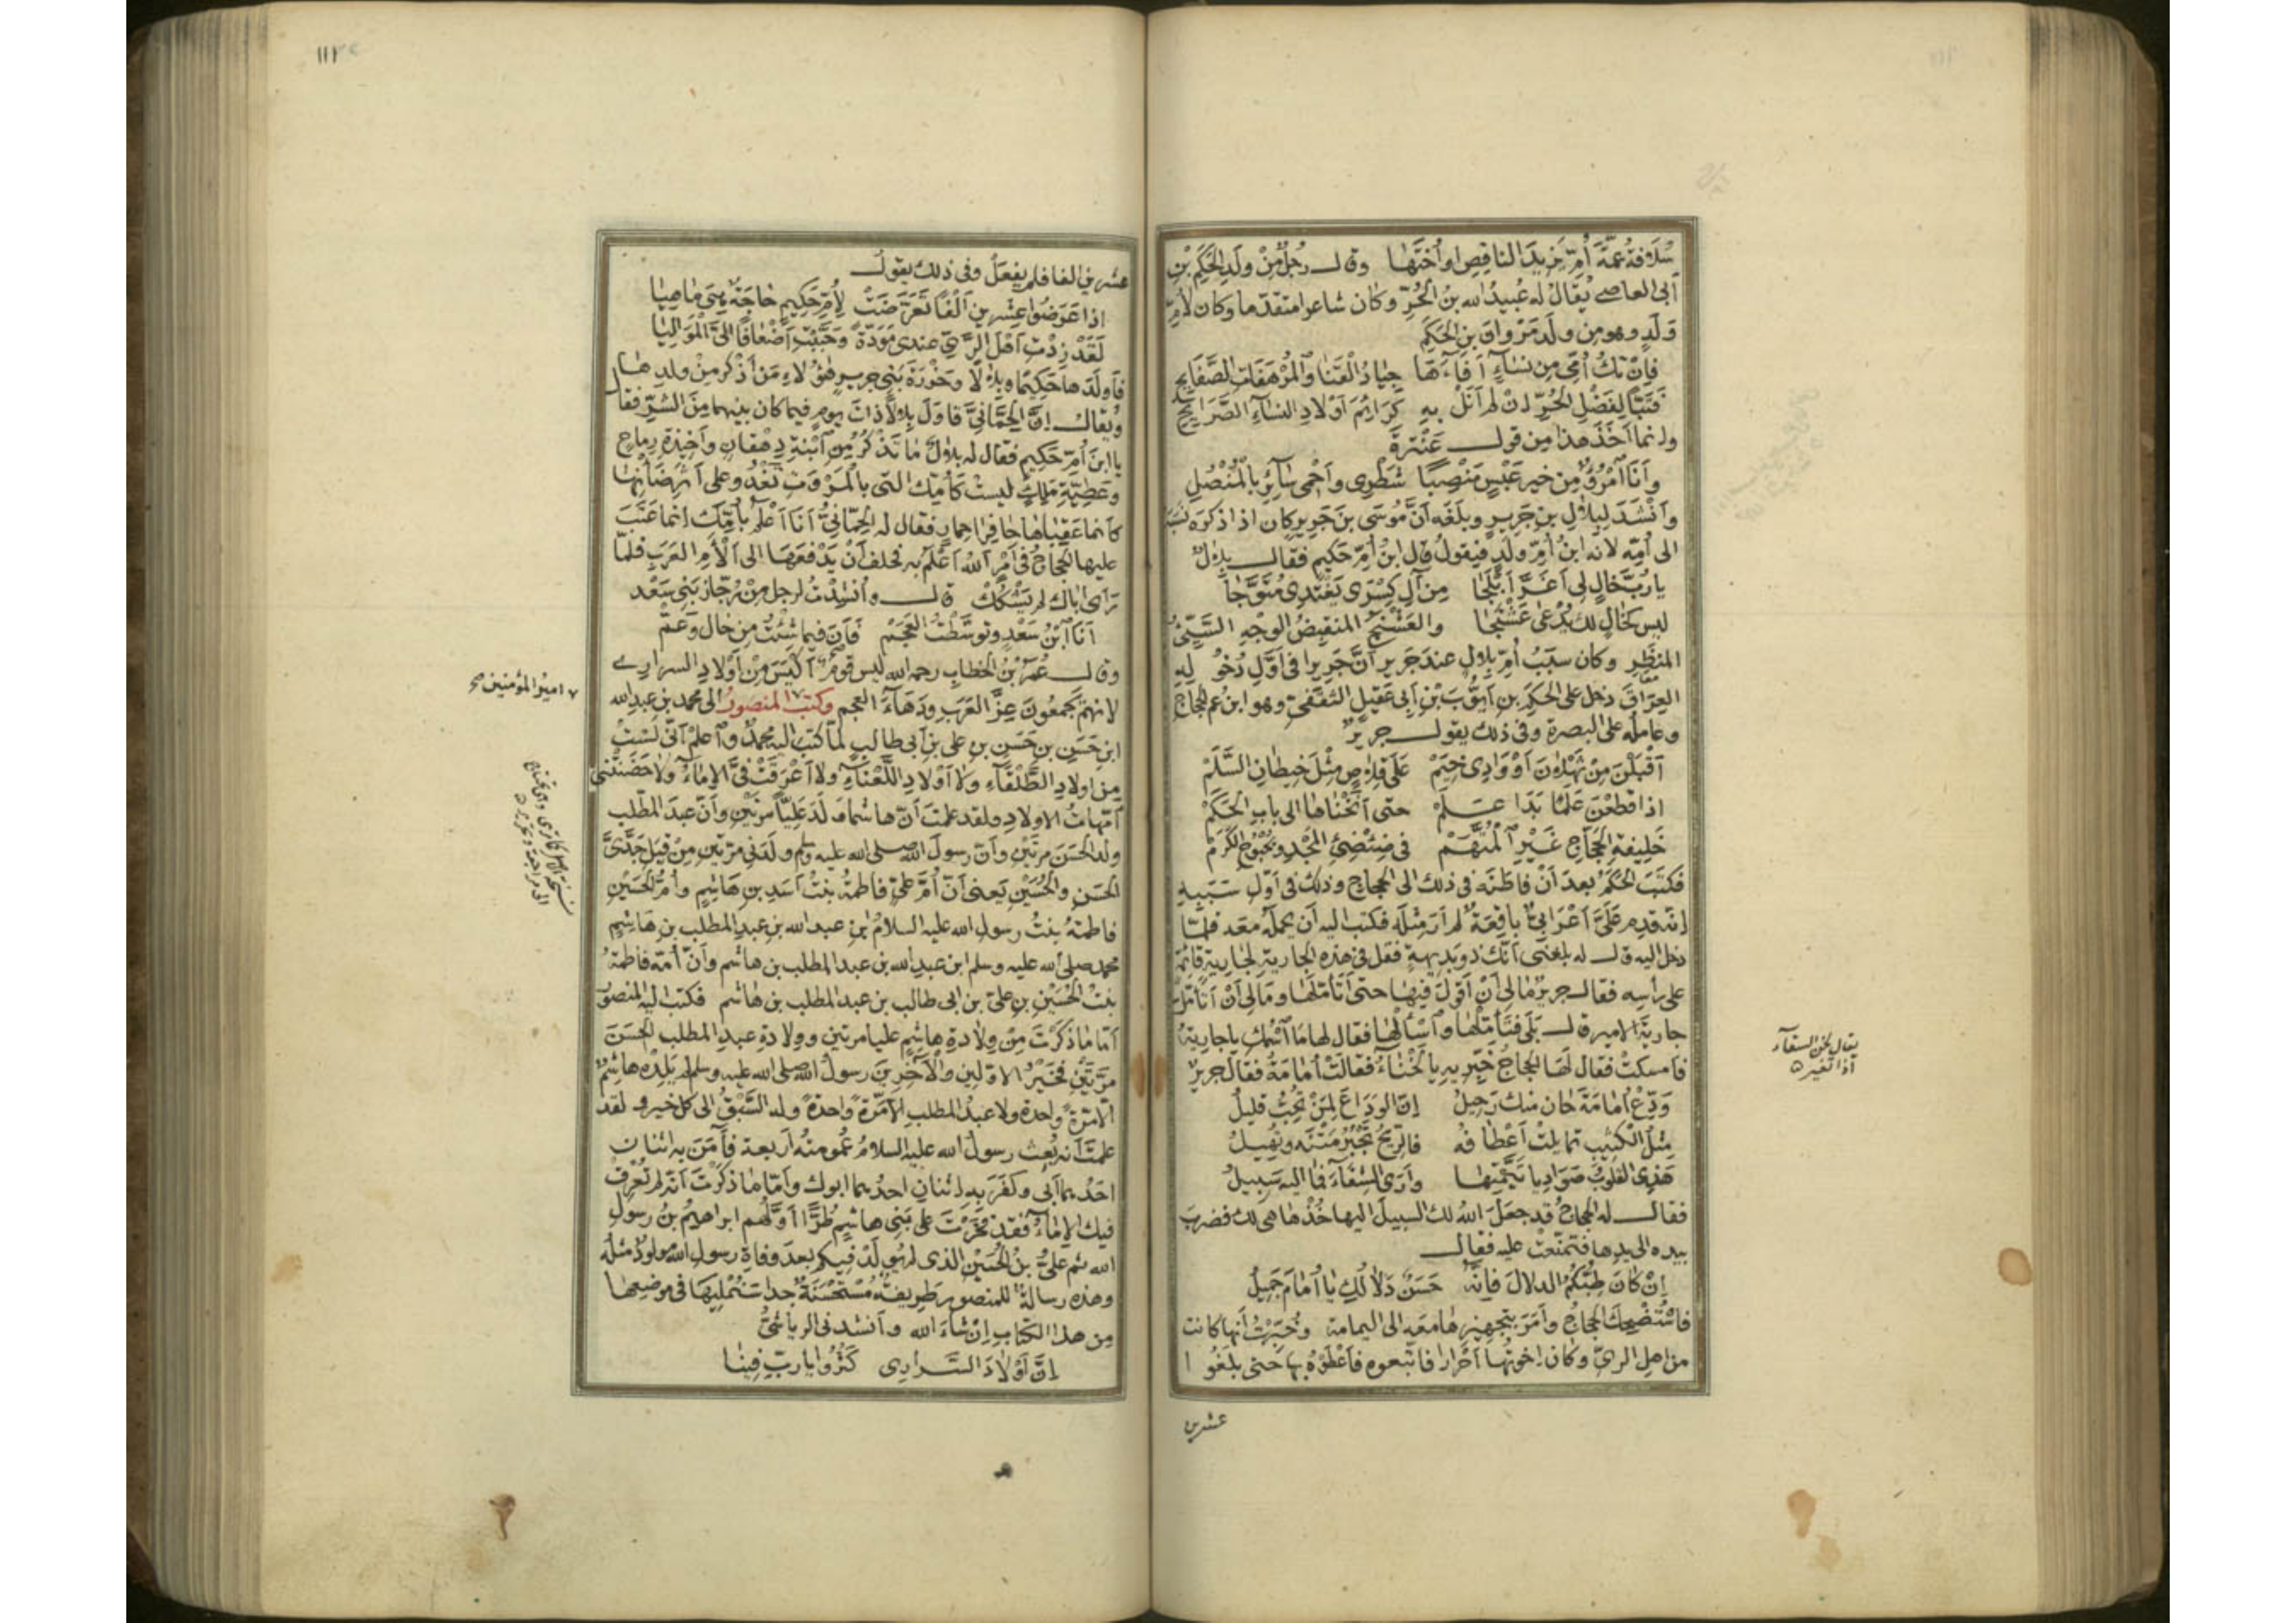 سُلَافَةُ عَمَّةُ أُمِّ يَزِيدَ الناقِصِ او أُختُها وقال رَجُلٌ مِنْ ولَدِ الحَكَمِ بْنِ
أبى العاصى يُقالُ له عُبيدُ الله بنُ الحُرِّ وكان شاعرا متقدّما وكان لأُمِّ
وَلَدٍ وهو من ولَد مَرْوانَ بنِ الحَكَمِ
فإنْ تكُ أُمِّى مِن نِساءٍ أَفاءَها جِيادُ الْقَنا والمُرْهَفاتِ الصَّفايِحِ
فَتَبًّا لِفَضْلِ الحُرِّ إنْ لم أَنَلْ بِهِ كَرايِمَ أَوْلادِ النِّساءِ الصَّرايِحِ
وإنما أَخَذَ هذا مِن قول عَنْتَرةَ
وأَنا امْرُؤٌ مِن خيرِ عَبْسٍ مَنْصِبًا شَطْرِى وأَحْمِى سائِرِى بالْمُنْصُلِ
وأَنْشَدَ لِبِلالِ بنِ جَريرٍ وبلَغَه أنَّ مُوسَى بنَ جَريرٍ كان اذا ذكَرَه نسَبَه
الى أُمِّه لانه ابنُ أُمِّ ولَدٍ فيقولُ قال ابنُ أُمِّ حَكيمٍ فقال بلالٌ
يا رُبَّ خالٍ لى أَغَرَّ أَبْلَجا مِن آلِ كِسْرَى يَغْتَدِى مُتَوَّجا
ليس كخالٍ لك يُدْعَى عَشْنَجا والعَشْنَجُ المنقبِضُ الوجهِ السَّيِّئُ
المنظَرِ وكان سبَبُ أُمِّ بِلالٍ عندَ جَريرٍ أنَّ جَريرًا فى أَوَّلِ دُخُولِهِ
العِراقَ دخل على الحَكَمِ بنِ أيُّوبَ بْنِ أَبى عَقيلٍ الثقَفىِّ وهو ابنُ عم الحجاج
وعامله على البصرة وفى ذلك يقول جريرٌ
أَقْبَلْنَ مِنْ ثَهْلانَ أوْ وَادِى خِيَمْ عَلَى قِلاصٍ مِثْلِ خِيطانِ السَّلَمْ
اذا قطَعْنَ عَلَمًا بَدَا عَلَمْ حتى أَنَخْناها الى بابِ الحَكَمْ
خَلِيفةِ الحَجّاجِ غَيْرِ الْمُتَّهَمْ فى ضِئْضِئِ المَجْدِ وبُحْبُوحِ الكَرَمْ
فكتَبَ الحَكَمُ بعدَ أنْ فاطَنَه فى ذلك الى الحجاج وذلك فى أوّل سَبَبِهِ
إنّه قدِم عَلَىَّ أَعْرابِىٌّ باقِعَةٌ لم أرَ مِثْلَه فكتب اليه أن يحمِلَه معَه فلمّا
دخل اليه قال له بلغنى أنّك ذو بَديهةٍ فقُل فى هذه الجارية لجاريةٍ قائمةٍ
على رأسِه فقال جريرٌ ما لى أنْ أَقولَ فيها حتى أتَأمّلَها وما لى أنْ أتأمّلَ
جاريةَ الامير قال بَلَى فتَأمَّلْها واسْألْها فقال لها ما اسْمُكِ يا جاريةُ
فأمسكتْ فقال لها الحجاجُ خَبِّريهِ يا لَخْناءُ فقالتْ أُمامَةُ فقال جريرٌ
وَدِّعْ أُمامةَ حان منك رَحيلُ إنّ الوَداعَ لِمَنْ تُحِبُّ قليلُ
مِثْلُ الْكَثِيبِ تمايلتْ أَعْطافُه فالرِّيحُ تَجْبُرُ مَتْنَه وتُهِيلُ
هَذِى القلوبُ صَوادِيا تَيَّمْتِها وأَرَى الشِّفاءَ وما اليه سَبيلُ
فقال له الحجاجُ قد جعَلَ اللهُ لك السبيلَ اليها خُذْها هى لك فضرَبَ
بيده الى يدِها فتمنّعَتْ عليه فقال
إنْ كان طِبُّكُمُ الدلالَ فإنّه حَسَنٌ دَلالُكِ يا أُمامَ جَمِيلُ
فاسْتُضْحِكَ الحجاجُ وأَمَرَ بتجهيزِها معَه الى اليمامة وخُبِّرْتُ أنها كانت
من اهلِ الرىِّ وكان إخوتُها أَحْرارا فاتّبعوه فأَعْطَوْه بها حتى بلَغُوا
عشرين
يقال لخن السقآء
اذا تغير
١١٢
عشرين الفا فلم يفعلْ وفى ذلك يقول
اذا عَرَضُوا عِشْرينَ أَلْفًا تَعَرَّضَتْ لأُمِّ حَكيمٍ حاجَةٌ هِىَ ما هِيا
لَقَدْ زِدْتِ أَهْلَ الرَّىِّ عندى مَوَدَّةً وحَبَّبْتِ أَضْعافًا الىَّ الْمَوالِيا
فأولَدَها حَكيمًا وبِلالًا وحَزْرَةَ بَنِى جريرٍ هؤلاء مَن أَذْكُر مِنْ ولَدِها
ويُقال إنّ الحِمّانِىَّ قاوَلَ بِلالًا ذاتَ يومٍ فيما كان بينهما مِنَ الشرِّ فقال
يا ابنَ أُمِّ حَكيمٍ فقال له بلالٌ ما تَذْكُرُ مِن ابْنَةِ دِهْقانٍ وأَخِيذةِ رِماحٍ
وعَطِيّةِ مَلِكٍ ليستْ كأُمِّك التى بالْمَرُّوتِ تَغْدُو على أثَرِ ضَأنِها
كأنما عَقِباها حافِرا حِمارٍ فقال له الحِمّانِىُّ أنا أَعْلَمُ بأُمِّك إنما عتَبَ
عليها الحجاجُ فى أَمْرٍ اللهُ أعْلَمُ به فحلف أنْ يَدْفعَها الى أَلْأَمِ العَرَبِ فلمّا
رَأى أباك لم يَشْكُكْ قال وأُنشِدْتُ لرجل مِنْ رُجّازِ بَنِى سَعْد
أنا ابْنُ سَعْدٍ وتوسَّطْتُ العَجَمْ فأَنا فيما شِئْتُ مِن خالٍ وعَمّْ
وقال عُمَرُ بْنُ الخطابِ رحمه الله ليس قومٌ أَكْيَسَ مِنْ أَوْلادِ السرارى
لانهم يَجمعُونَ عِزَّ العَرَبِ ودَهاءَ العجم وكتب المنصورُ الى محمد بنِ عبدِ الله
ابنِ حَسَنِ بنِ حَسَنِ بنِ على بن أبى طالبٍ لمّا كتب اليه محمدٌ واعلمْ أنّى لَسْتُ
مِن اولادِ الطُّلَقاءِ ولا أوْلادِ اللُّعَناءِ ولا أَعْرَقَتْ فىَّ الإماءُ ولا حَضَنَتْنى
أُمّهاتُ الاولادِ ولقد علمتَ أنّ هاشما ولَدَ عَلِيًّا مرّتَيْنِ وأنّ عبدَ المطّلب
ولدَ الحَسَنَ مرّتَيْنِ وأنّ رسولَ الله صلى الله عليه وسلم ولَدَنى مرّتين مِنْ قِبَلِ جَدَّىَّ
الحَسَن والحُسَيْنِ يَعنى أنّ أُمَّ علىٍّ فاطمةُ بنتُ أَسَدِ بنِ هاشِمٍ وأُمُّ الحُسَيْنِ
فاطمةُ بنتُ رسولِ الله عليه السلامُ بنِ عبد الله بنِ عبدِ المطلب بنِ هاشِمٍ
محمد صلى الله عليه وسلم ابن عبدِ الله بن عبد المطلب بن هاشم وأنّ أمّه فاطمةُ
بنتُ الحُسَيْنِ بنِ علىّ بن ابى طالب بن عبد المطلب بن هاشم فكتب اليه المنصورُ
أمّا ما ذكرتَ مِنْ وِلادةِ هاشِمٍ عليا مرتين وولادةِ عبدِ المطلب الحَسَنَ
مرّتَيْنِ فخَيْرُ الاوّلين والآخِرِينَ رسولُ الله صلى الله عليه وسلم لم يَلِدْه هاشِمٌ
الّا مَرّةً واحدةً ولا عبدُ المطلب الّا مَرّةً واحدةً وله السَّبْقُ الى كل خير ولقد
علمتَ أنه بُعِثَ رسولُ الله عليه السلامُ وعُمومتُه أربعةٌ فآمَنَ به اثنانِ
احَدُهما أبى وكفَرَ به اثنانِ احدُهما ابوك وأمّا ما ذكرتَ أنّه لم تُعْرِقْ
فيك الإماءُ فقد فَخَرْتَ على بَنِى هاشِمٍ طُرًّا أوّلُهم ابراهيمُ بنُ رسولِ
الله ثم علىُّ بنُ الحُسَيْنِ الذى لم يُولَدْ فيكم بعدَ وفاةِ رسولِ الله مولودٌ مثلُه
وهذه رسالةٌ للمنصورِ طَرِيفةٌ مُسْتحْسَنةٌ جدا سَنُمْلِيها فى موضِعِها
مِن هذا الكتابِ إنْ شاءَ الله وأنشد فى الرياشىُّ
إنَّ أَوْلادَ السَّرارِى كَثُرُوا يا ربِّ فِينا
امير المؤمنين صح